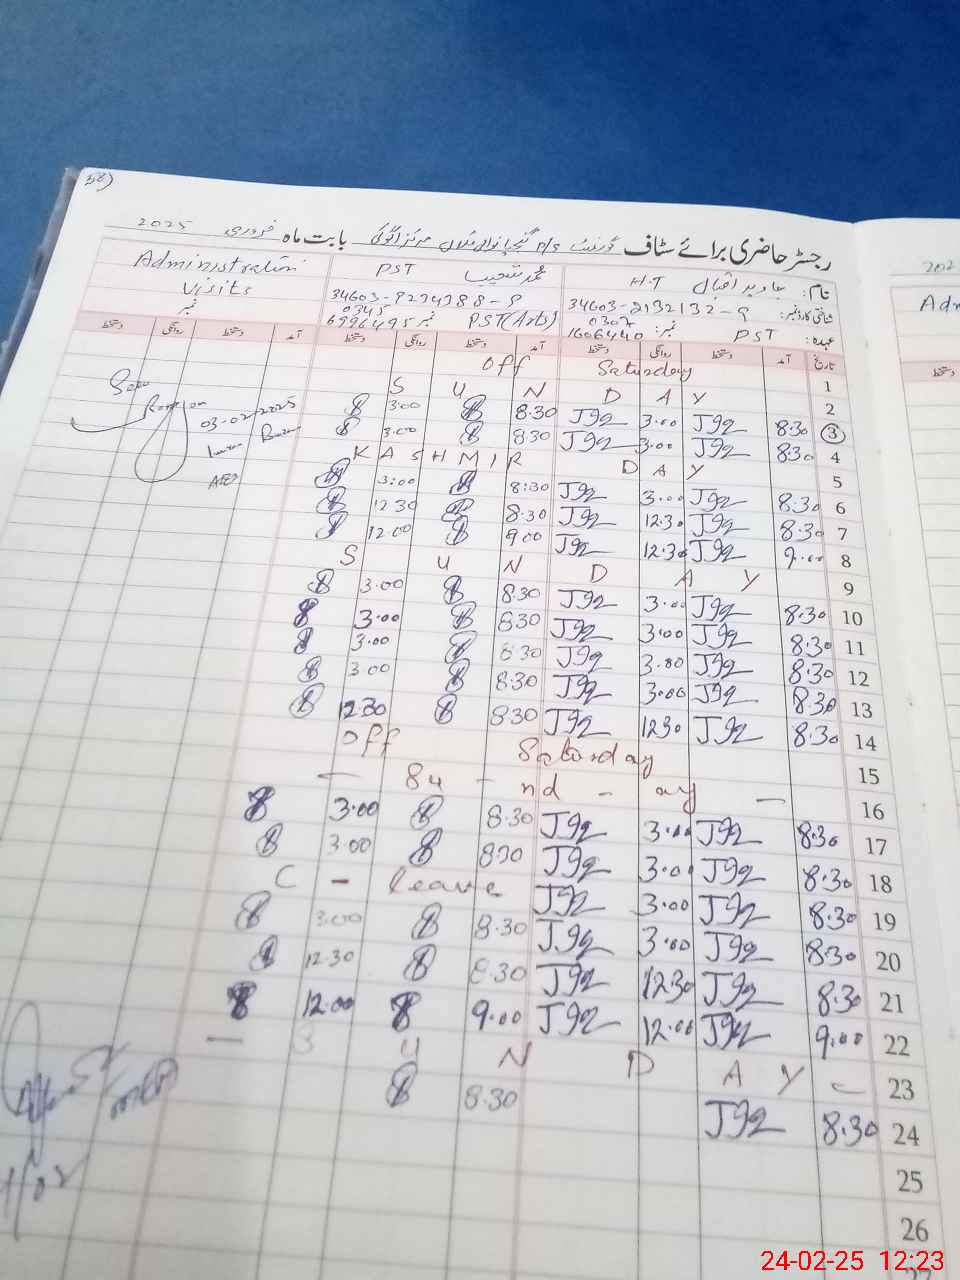 58)
رجسٹر حاضری برائے سٹاف گورنمنٹ P/S مرکز اگوکی بابت ماہ فروری 2025
نام: جاوید اقبال H.T محمد شعیب PST Administration Visits
شناختی کارڈ نمبر: 34603-2132132-9 34603-8294388-9
عہدہ: PST نمبر: 0307 1606440 PST(Arts) نمبر 0345 6996495 نمبر
تاریخ آمد دستخط روانگی دستخط آمد دستخط روانگی دستخط آمد دستخط روانگی دستخط
1 Saturday Off
2 S U N D A Y
3 8:30 J92 3.00 J92 8.30 3.00 03-02-2025
4 8:30 J92 3.00 J92 8:30 3.00
5 K A S H M I R D A Y
6 8.30 J92 3.00 J92 8:30 3:00 AEO
7 8:30 J92 12.30 J92 8.30 12.30
8 9.00 J92 12.30 J92 9.00 12.00
9 S U N D A Y
10 8:30 J92 3.00 J92 8.30 3.00
11 8:30 J92 3.00 J92 8.30 3.00
12 8:30 J92 3.00 J92 8:30 3.00
13 8:30 J92 3.00 J92 8:30 3.00
14 8:30 J92 1230 J92 8:30 12.30
15 Off Saturday
16 — Su - nd - ay —
17 8:30 J92 3.00 J92 8.30 3.00
18 8:30 J92 3.00 J92 8:30 3.00
19 8:30 J92 3.00 J92 C - leave
20 8:30 J92 3.00 J92 8.30 3.00
21 8:30 J92 12.30 J92 8.30 12.30
22 9.00 J92 12.00 J92 9.00 12.00
23 — S U N D A Y —
24 8.30 J92 8.30
25
26
24-02-25 12:23